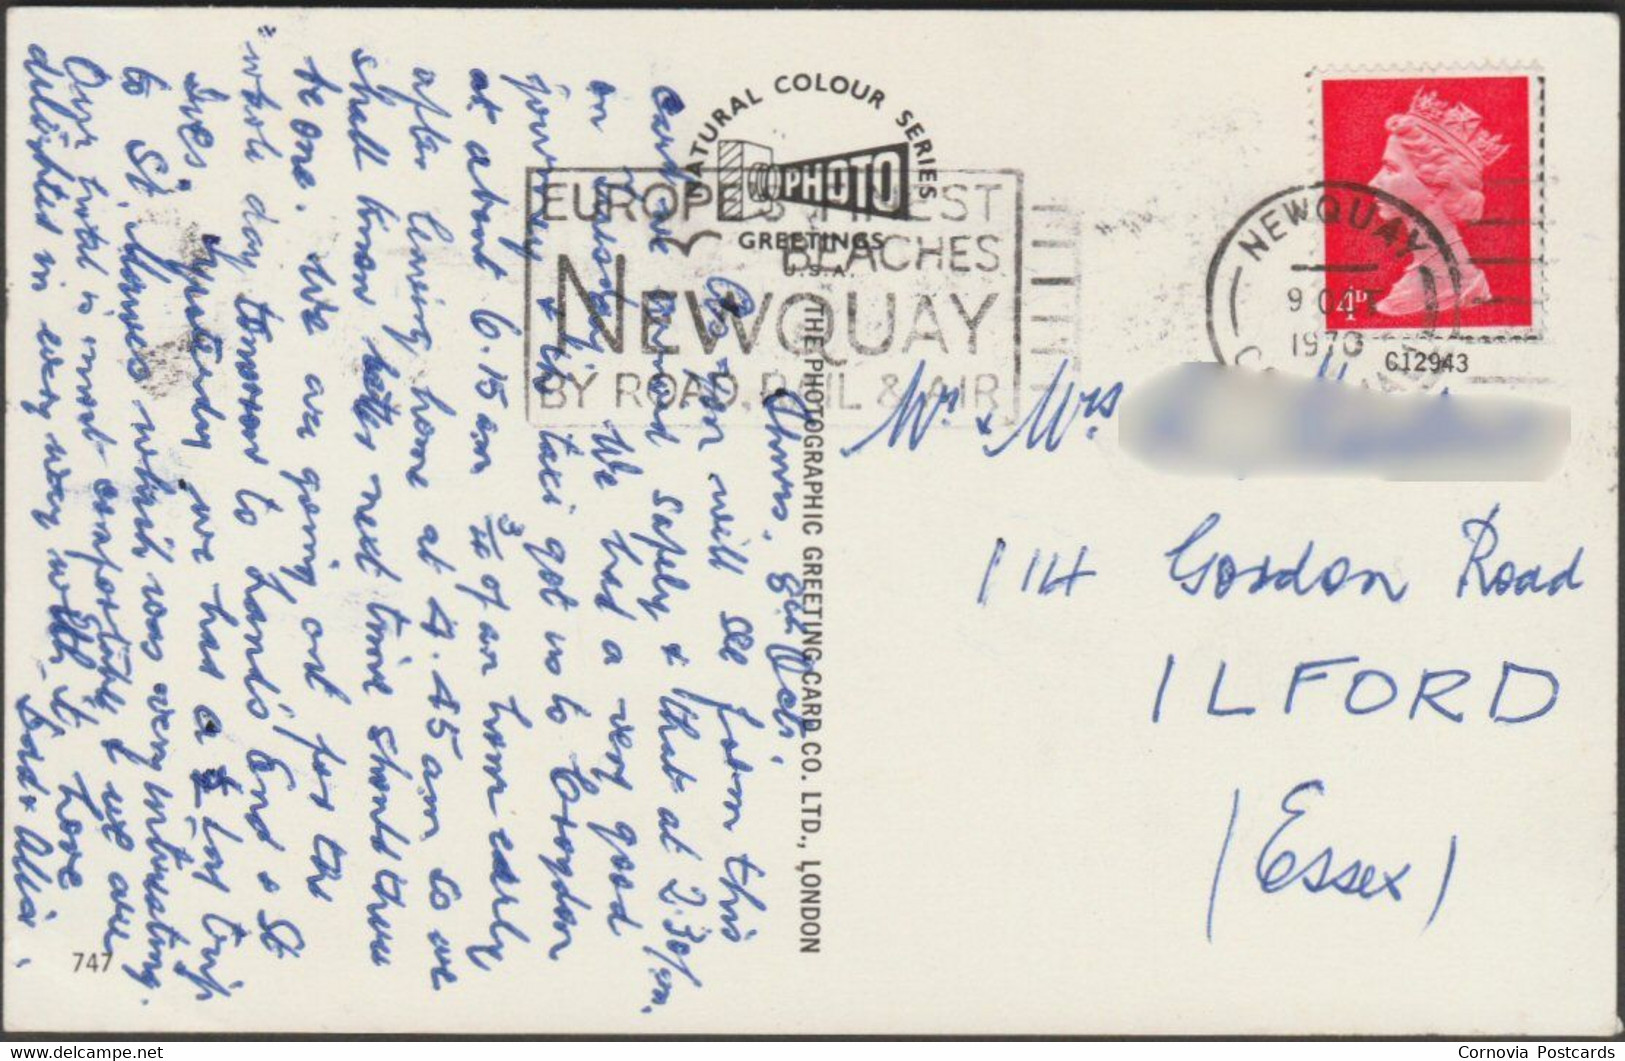 Thurs. 8th Oct.
As you will see from this
card we arrived safely & that at 2.30/pm.
on Tuesday. We had a very good
journey & the taxi got us to Croydon
at about 6.15 am 3/4 of an hour early
after leaving home at 4.45 am so we
shall know better next time should there
be one. We are going out for the
whole day tomorrow to Land's End & St
Ives. Yesterday we had a ½ day trip
to St Mawes which was very interesting.
Our hotel is most comfortable & we are
delighted in every way with it. Love
& Alice.
747
NATURAL COLOUR SERIES
PHOTO
GREETINGS
U.S.A.
THE PHOTOGRAPHIC GREETING CARD CO. LTD., LONDON
EUROPE'S FINEST
BEACHES
NEWQUAY
BY ROAD, RAIL & AIR
NEWQUAY
9 OCT
1970
CORNWALL
4D
C12943
Mr. & Mrs
114 Gordon Road
ILFORD
(Essex)
www.delcampe.net
Cornovia Postcards